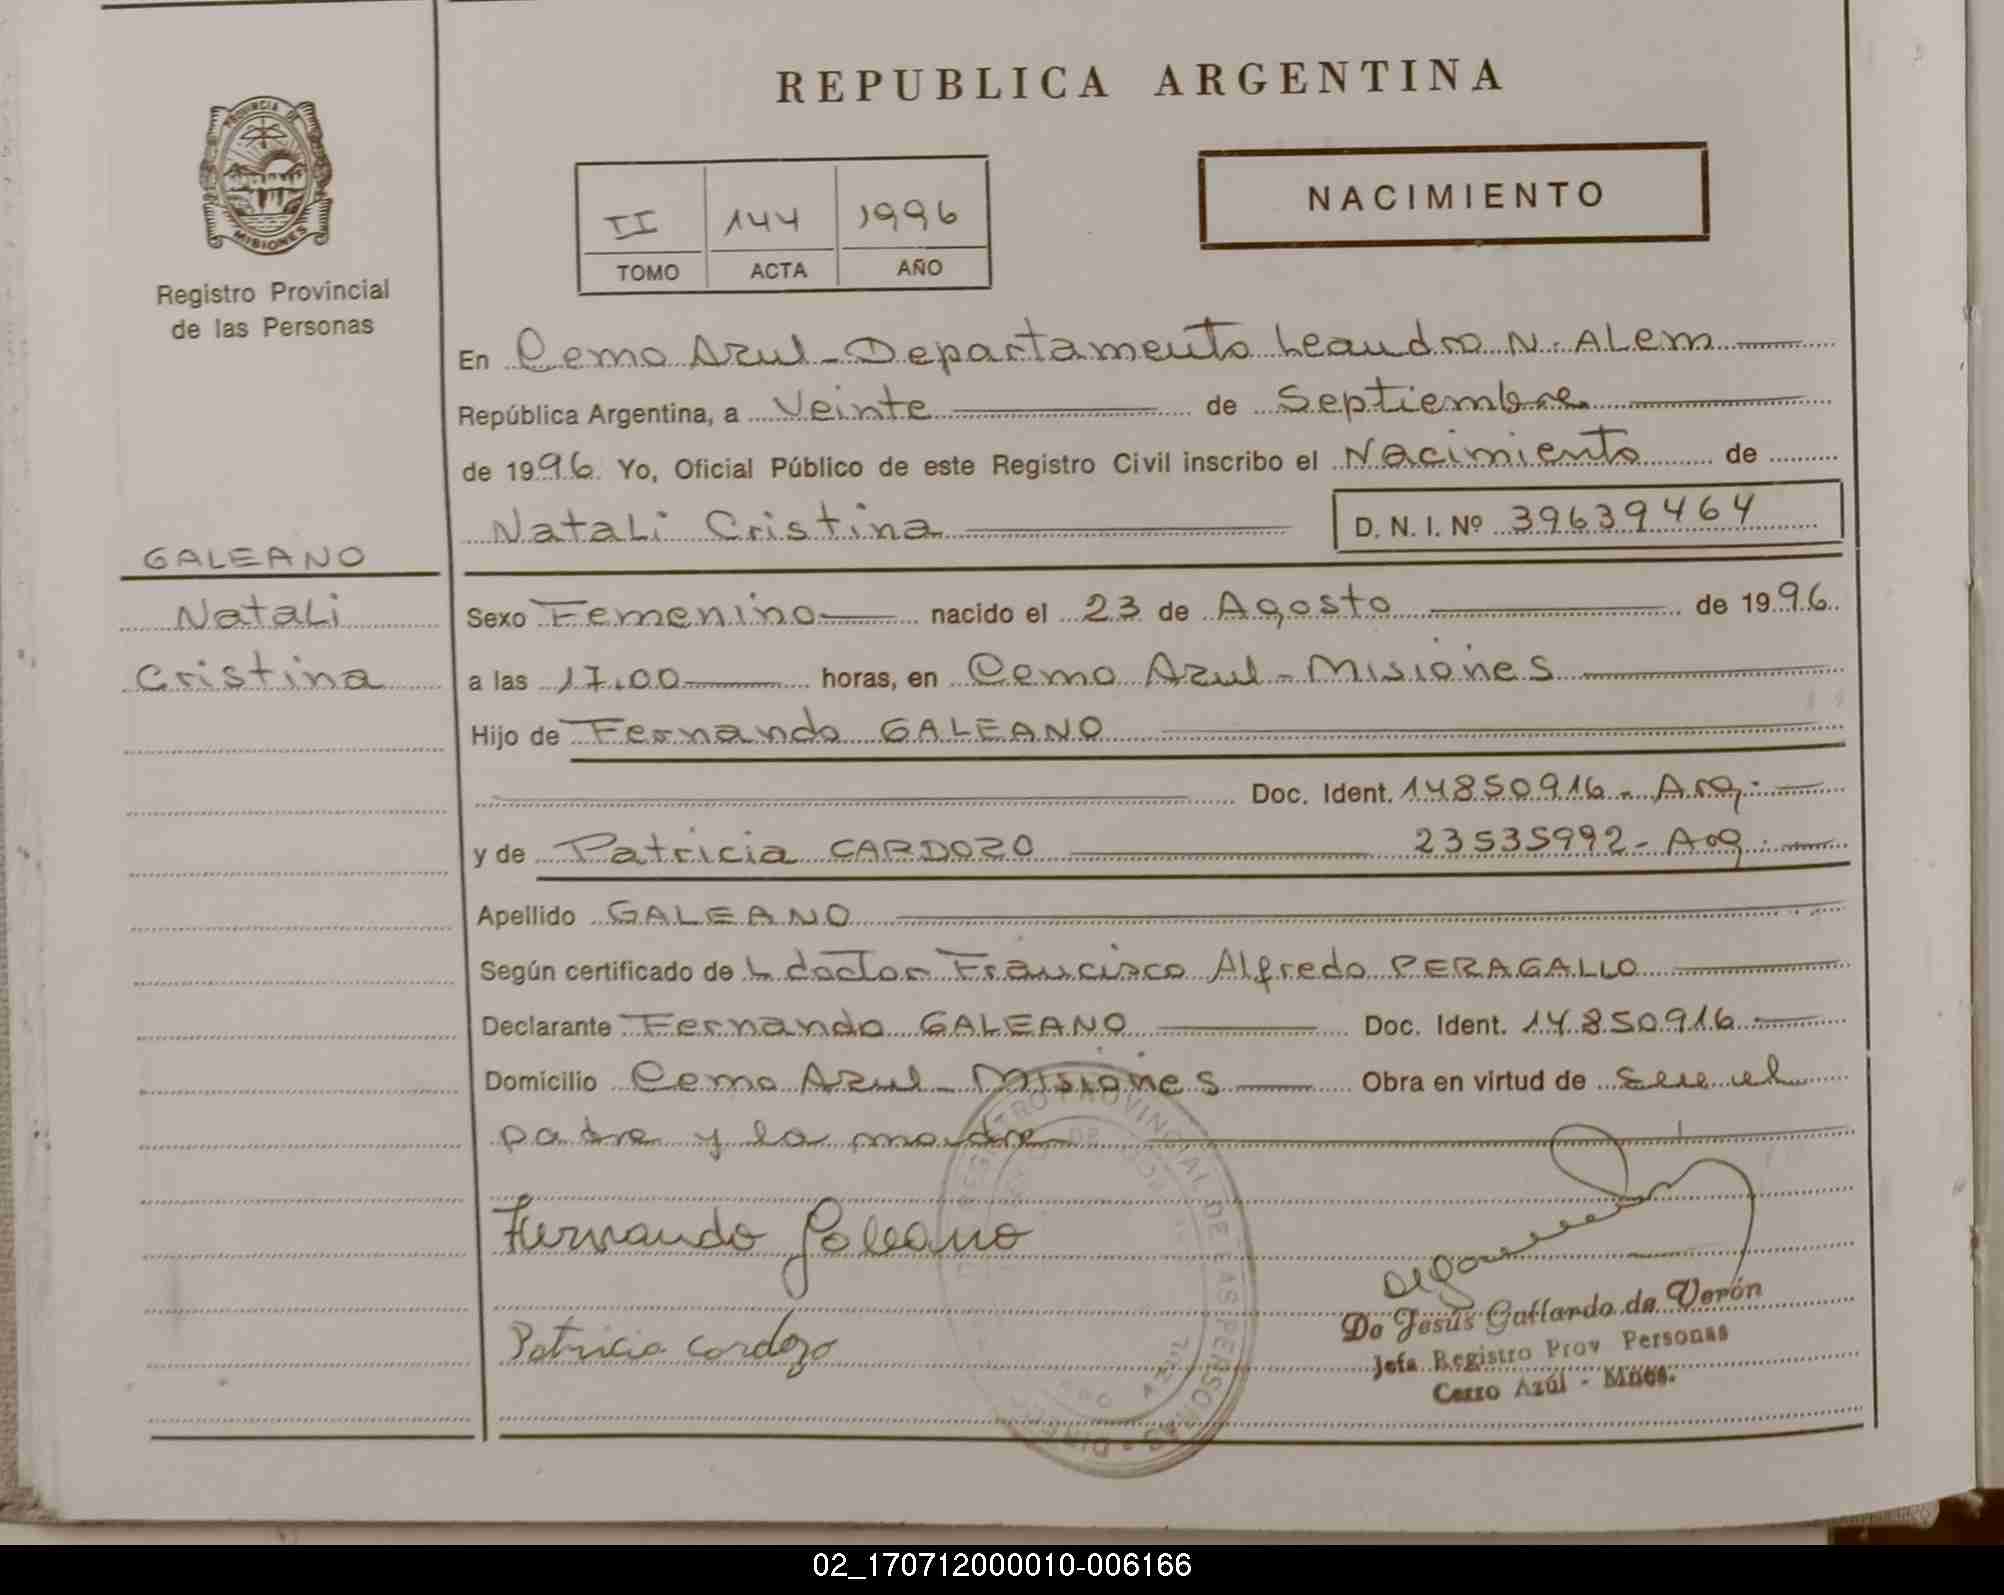 REPUBLICA ARGENTINA
PROVINCIA DE
MISIONES
Registro Provincial
de las Personas
NACIMIENTO
II 144 1996
TOMO ACTA AÑO
En Cerro Azul - Departamento Leandro N. ALem
República Argentina, a Veinte de Septiembre
de 1996. Yo, Oficial Público de este Registro Civil inscribo el Nacimiento de
Natali Cristina D. N. I. Nº 39639464
GALEANO
Natali
Cristina
Sexo Femenino nacido el 23 de Agosto de 1996.
a las 17.00 horas, en Cerro Azul - Misiones
Hijo de Fernando GALEANO
Doc. Ident. 14850916 - Arg.
y de Patricia CARDOZO 23535992 - Arg.
Apellido GALEANO
Según certificado de L doctor Francisco Alfredo PERAGALLO
Declarante Fernando GALEANO Doc. Ident. 14.850.916
Domicilio Cerro Azul - Misiones Obra en virtud de Ser el
padre y la madre
Fernando Galeano
Patricia Cardozo
REGISTRO PROVINCIAL DE LAS PERSONAS
Do Jesús Gallardo de Verón
Jefa Registro Prov Personas
Cerro Azúl - Mnes.
02_170712000010-006166